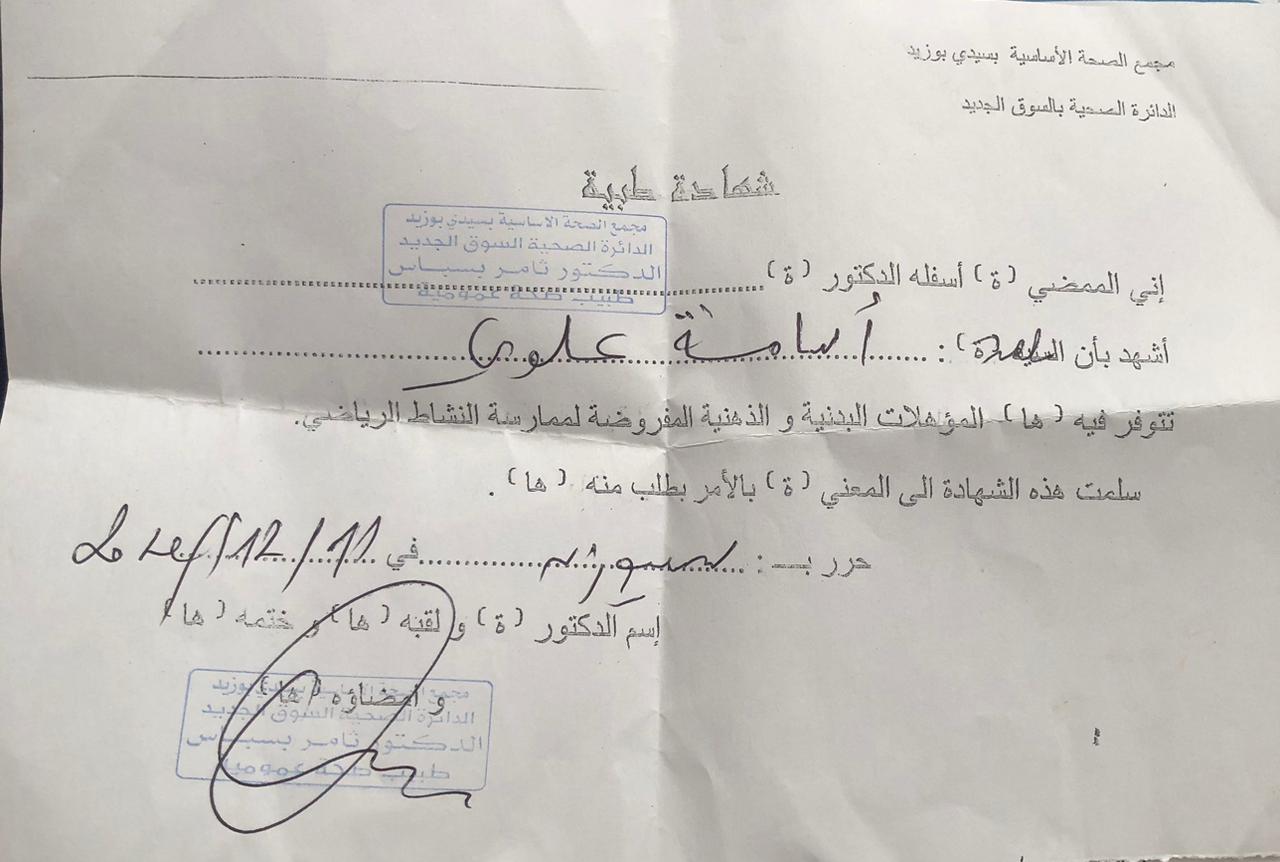 مجمع الصحة الأساسية بسيدي بوزيد
الدائرة الصحية بالسوق الجديد
شهادة طبية
مجمع الصحة الاساسية بسيدي بوزيد
الدائرة الصحية السوق الجديد
الدكتور ثامر بسباس
طبيب صحة عمومية
إني الممضي (ة) أسفله الدكتور (ة)
أشهد بأن السيد(ة) : أسامة علوي
تتوفر فيه (ها) المؤهلات البدنية و الذهنية المفروضة لممارسة النشاط الرياضي.
سلمت هذه الشهادة الى المعني (ة) بالأمر بطلب منه (ها) .
حرر بـ : في 11/12/
إسم الدكتور (ة) و لقبه (ها) و ختمه (ها)
و امضاؤه (ها)
مجمع الصحة الاساسية بسيدي بوزيد
الدائرة الصحية السوق الجديد
الدكتور ثامر بسباس
طبيب صحة عمومية